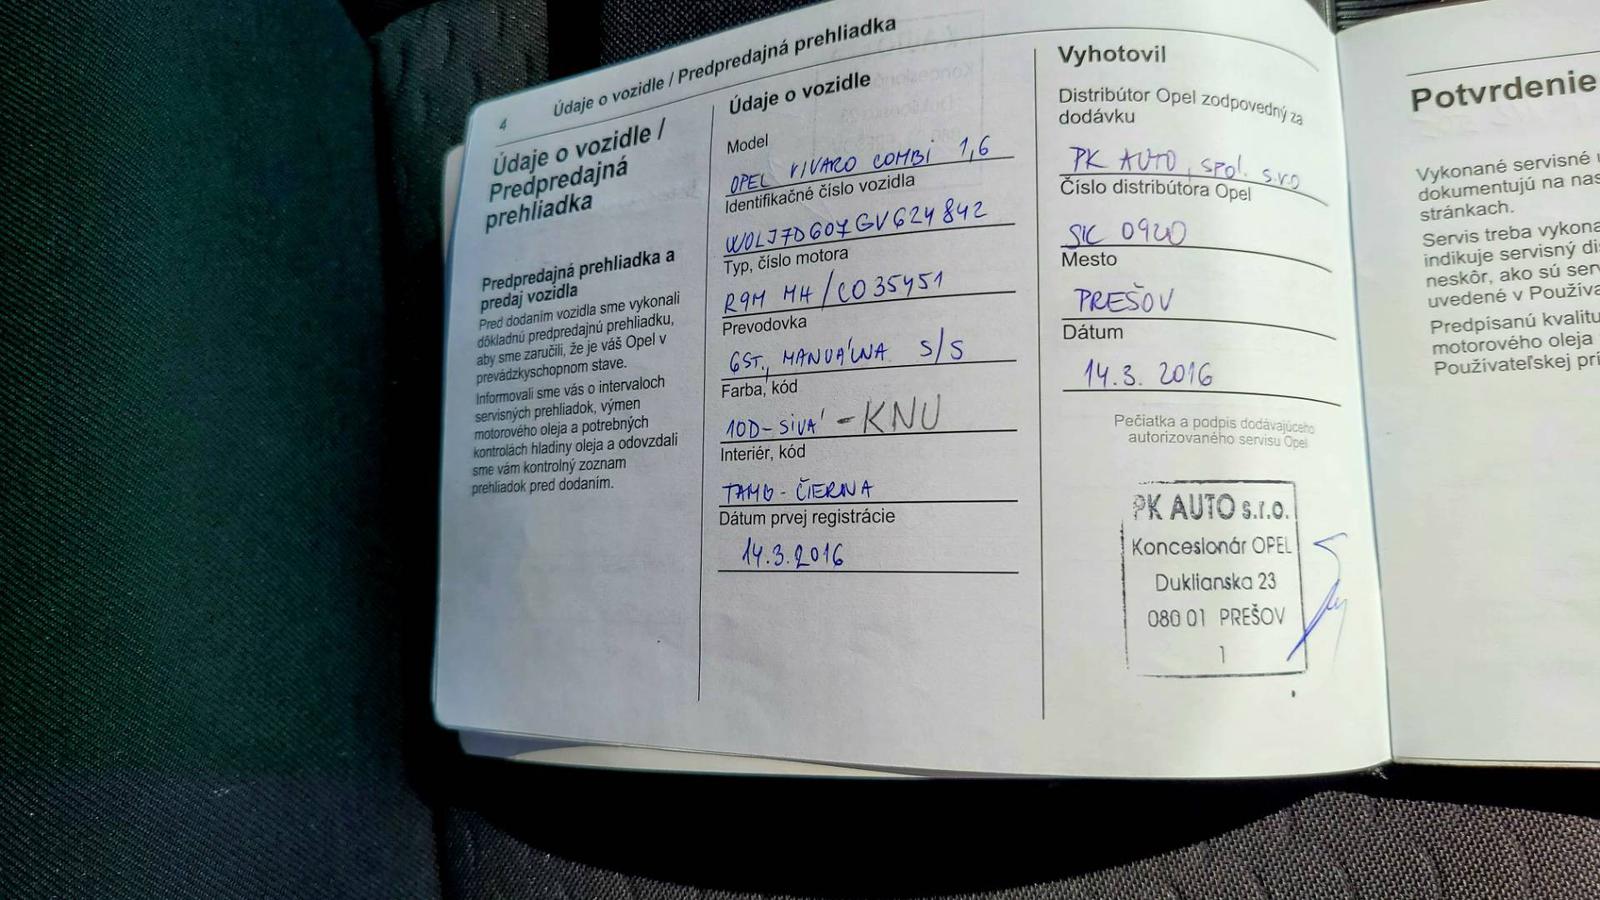 4
Údaje o vozidle / Predpredajná prehliadka
Údaje o vozidle /
Predpredajná
prehliadka
Predpredajná prehliadka a
predaj vozidla
Pred dodaním vozidla sme vykonali
dôkladnú predpredajnú prehliadku,
aby sme zaručili, že je váš Opel v
prevádzkyschopnom stave.
Informovali sme vás o intervaloch
servisných prehliadok, výmen
motorového oleja a potrebných
kontrolách hladiny oleja a odovzdali
sme vám kontrolný zoznam
prehliadok pred dodaním.
Údaje o vozidle
Model
OPEL VIVARO COMBI 1,6
Identifikačné číslo vozidla
W0LJ7D607GV624842
Typ, číslo motora
R9M MH/C035451
Prevodovka
6ST., MANUÁLNA S/S
Farba, kód
10D-SIVÁ - KNU
Interiér, kód
- ČIERNA
Dátum prvej registrácie
14.3.2016
Vyhotovil
Distribútor Opel zodpovedný za
dodávku
PK AUTO, spol. s.r.o
Číslo distribútora Opel
SIC 0920
Mesto
PREŠOV
Dátum
14.3. 2016
Pečiatka a podpis dodávajúceho
autorizovaného servisu Opel
PK AUTO s.r.o.
Koncesionár OPEL
Duklianska 23
080 01 PREŠOV
1
Potvrdenie
Vykonané servisné
dokumentujú na
stránkach.
Servis treba
indikuje servisný
neskôr, ako sú
uvedené v
Predpísanú
motorového oleja